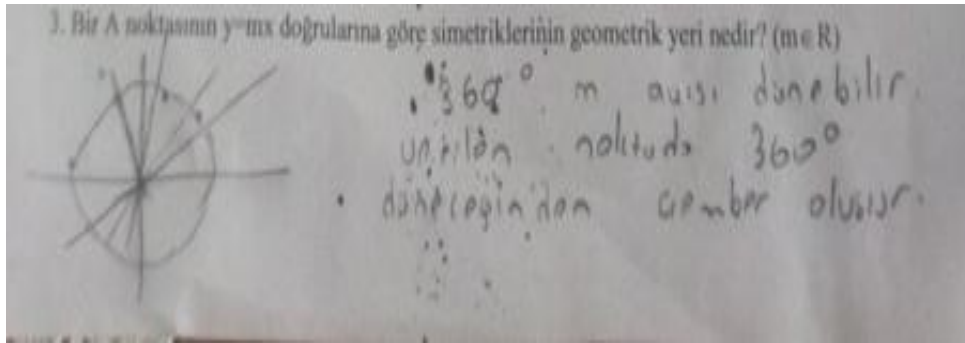 3. Bir A noktasının y=mx doğrularına göre simetriklerinin geometrik yeri nedir? (m∈R)
360° m açısı dönebilir.
noktada 360°
döneceğinden çember oluşur.